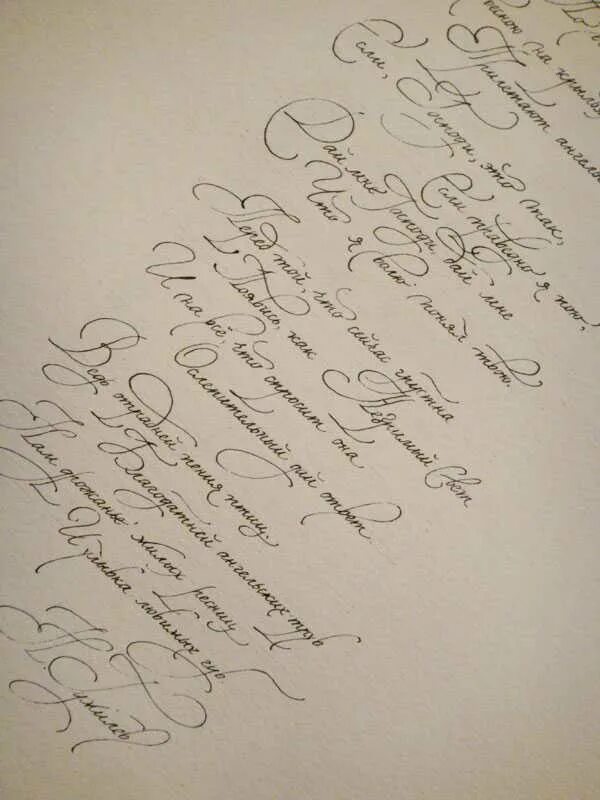 на крылах
Прилетают ангелы
Если, Господи, это так,
Если праведно я пою,
Дай мне Господи, дай мне
Что я волю понял твою.
Перед той, что сейчас грустна
Появись, как Незримый Свет
И на всё, что спросит она
Ослепительный дай ответ.
Ведь отрадней пения птиц.
Благодатней ангельских труб
Нам дрожанье милых ресниц
И улыбка любимых губ
Н. Гумилёв